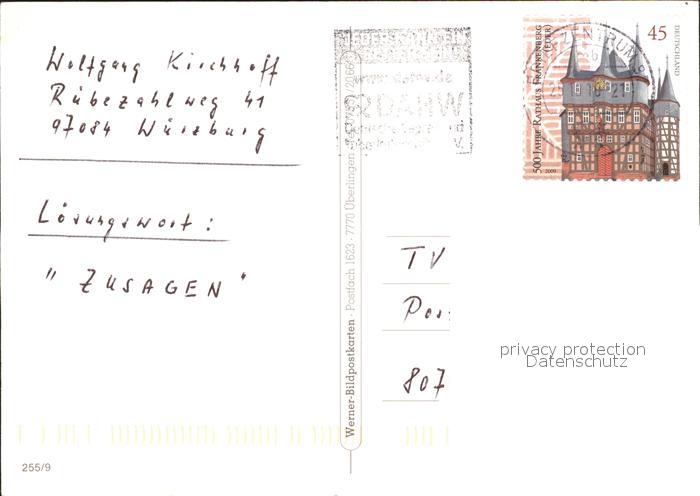 Wolfgang Kirchhoff
Rübezahlweg 41
97084 Würzburg
Lösungswort:
"ZUSAGEN"
255/9
Werner-Bildpostkarten · Postfach 1623 · 7770 Überlingen
DAHW
ZENTRUM
500 JAHRE RATHAUS FRANKENBERG
(EDER)
2009
45
DEUTSCHLAND
TV
Pos
807
privacy protection
Datenschutz